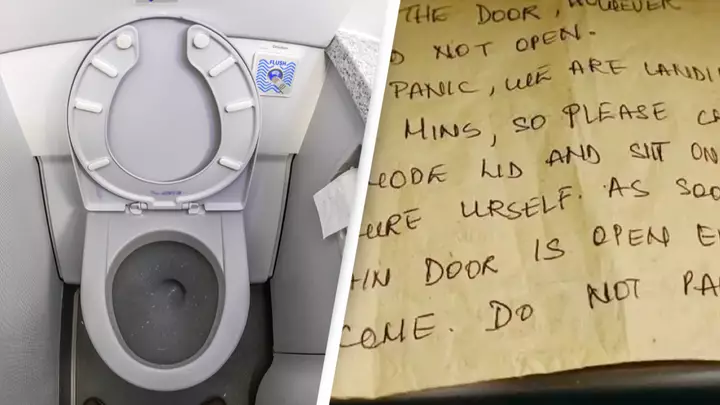 FLUSH
THE DOOR, HOWEVER
NOT OPEN.
PANIC, WE ARE LANDI
MINS, SO PLEASE
LID AND SIT ON
URE URSELF. AS SOO
DOOR IS OPEN E
COME. DO NOT PA